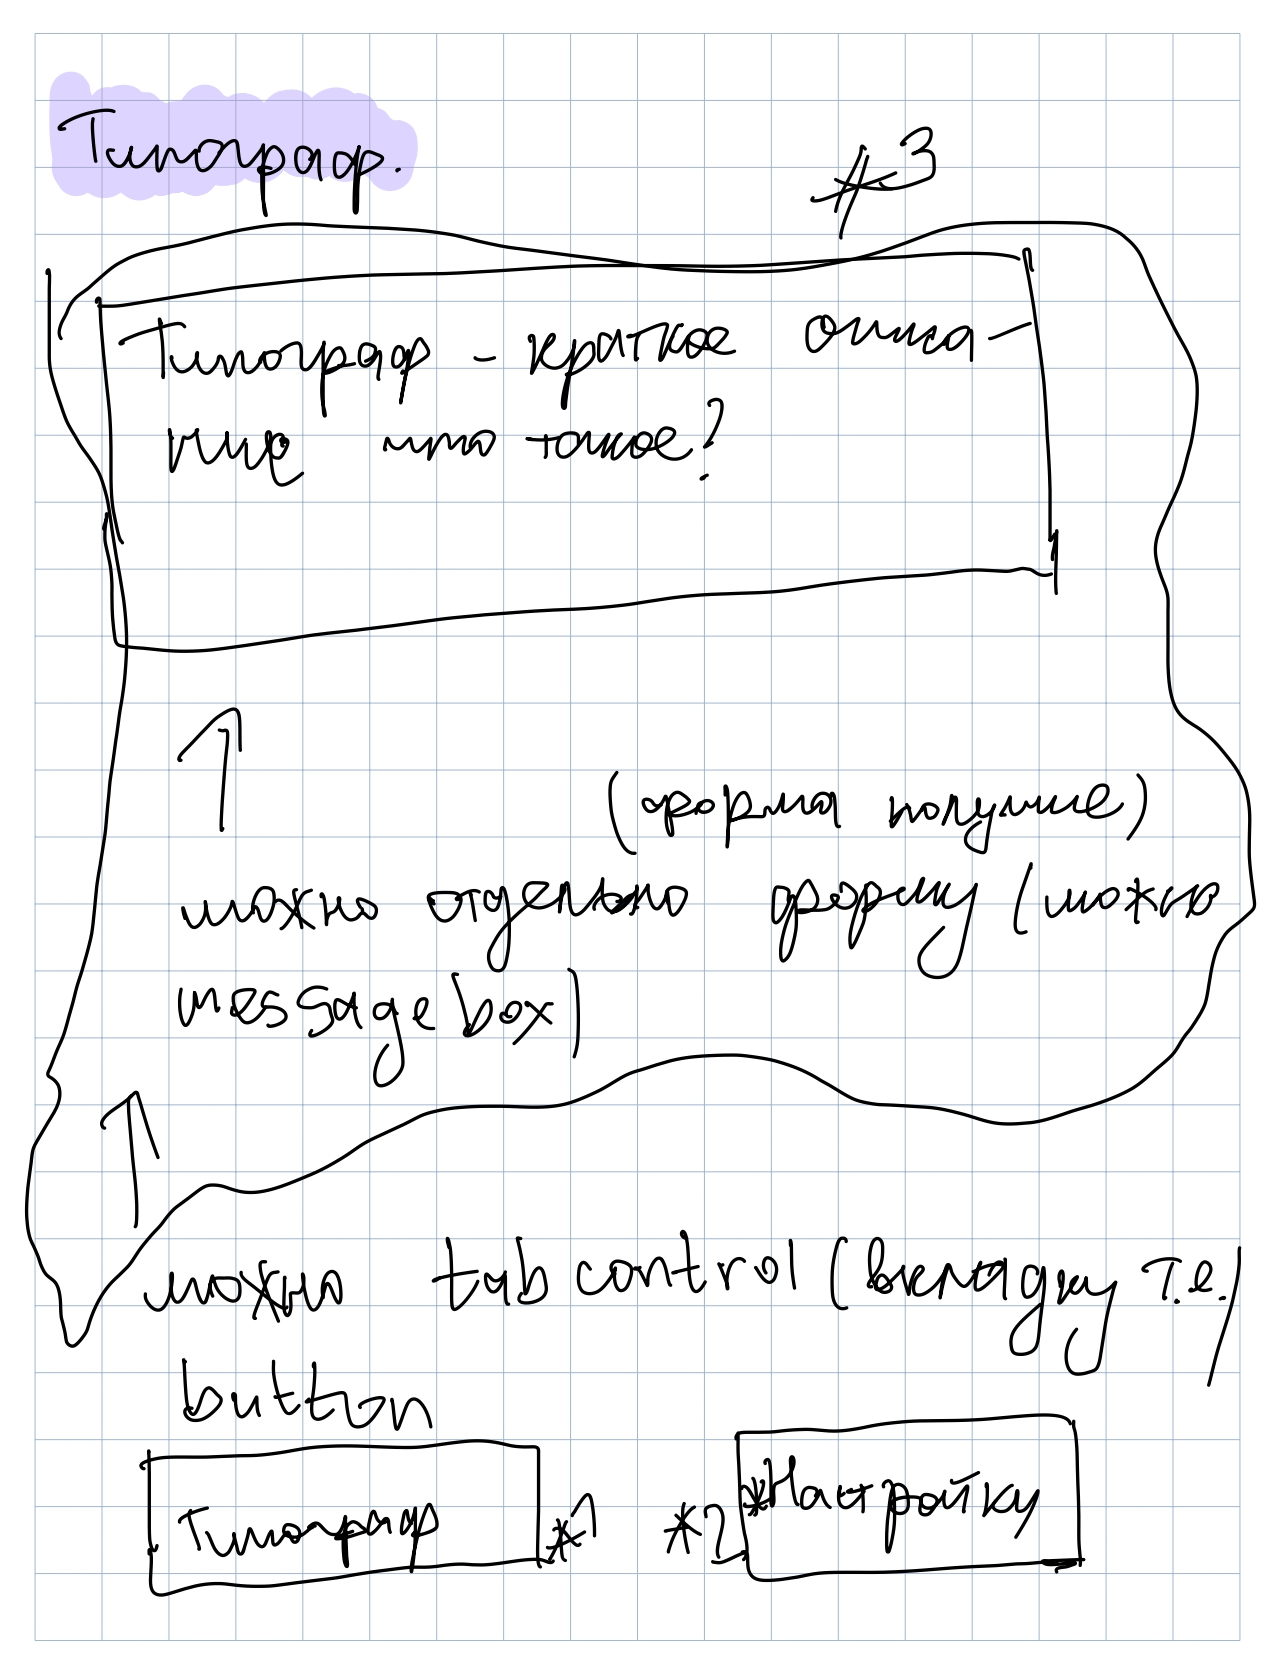 Типограф.
*3
Типограф - краткое описа-
ние что такое?
(форма получше)
можно отдельно форму (можно
messagebox)
можно tabcontrol (вкладку т.е.)
button
Типограф *1
*2 *Настройку